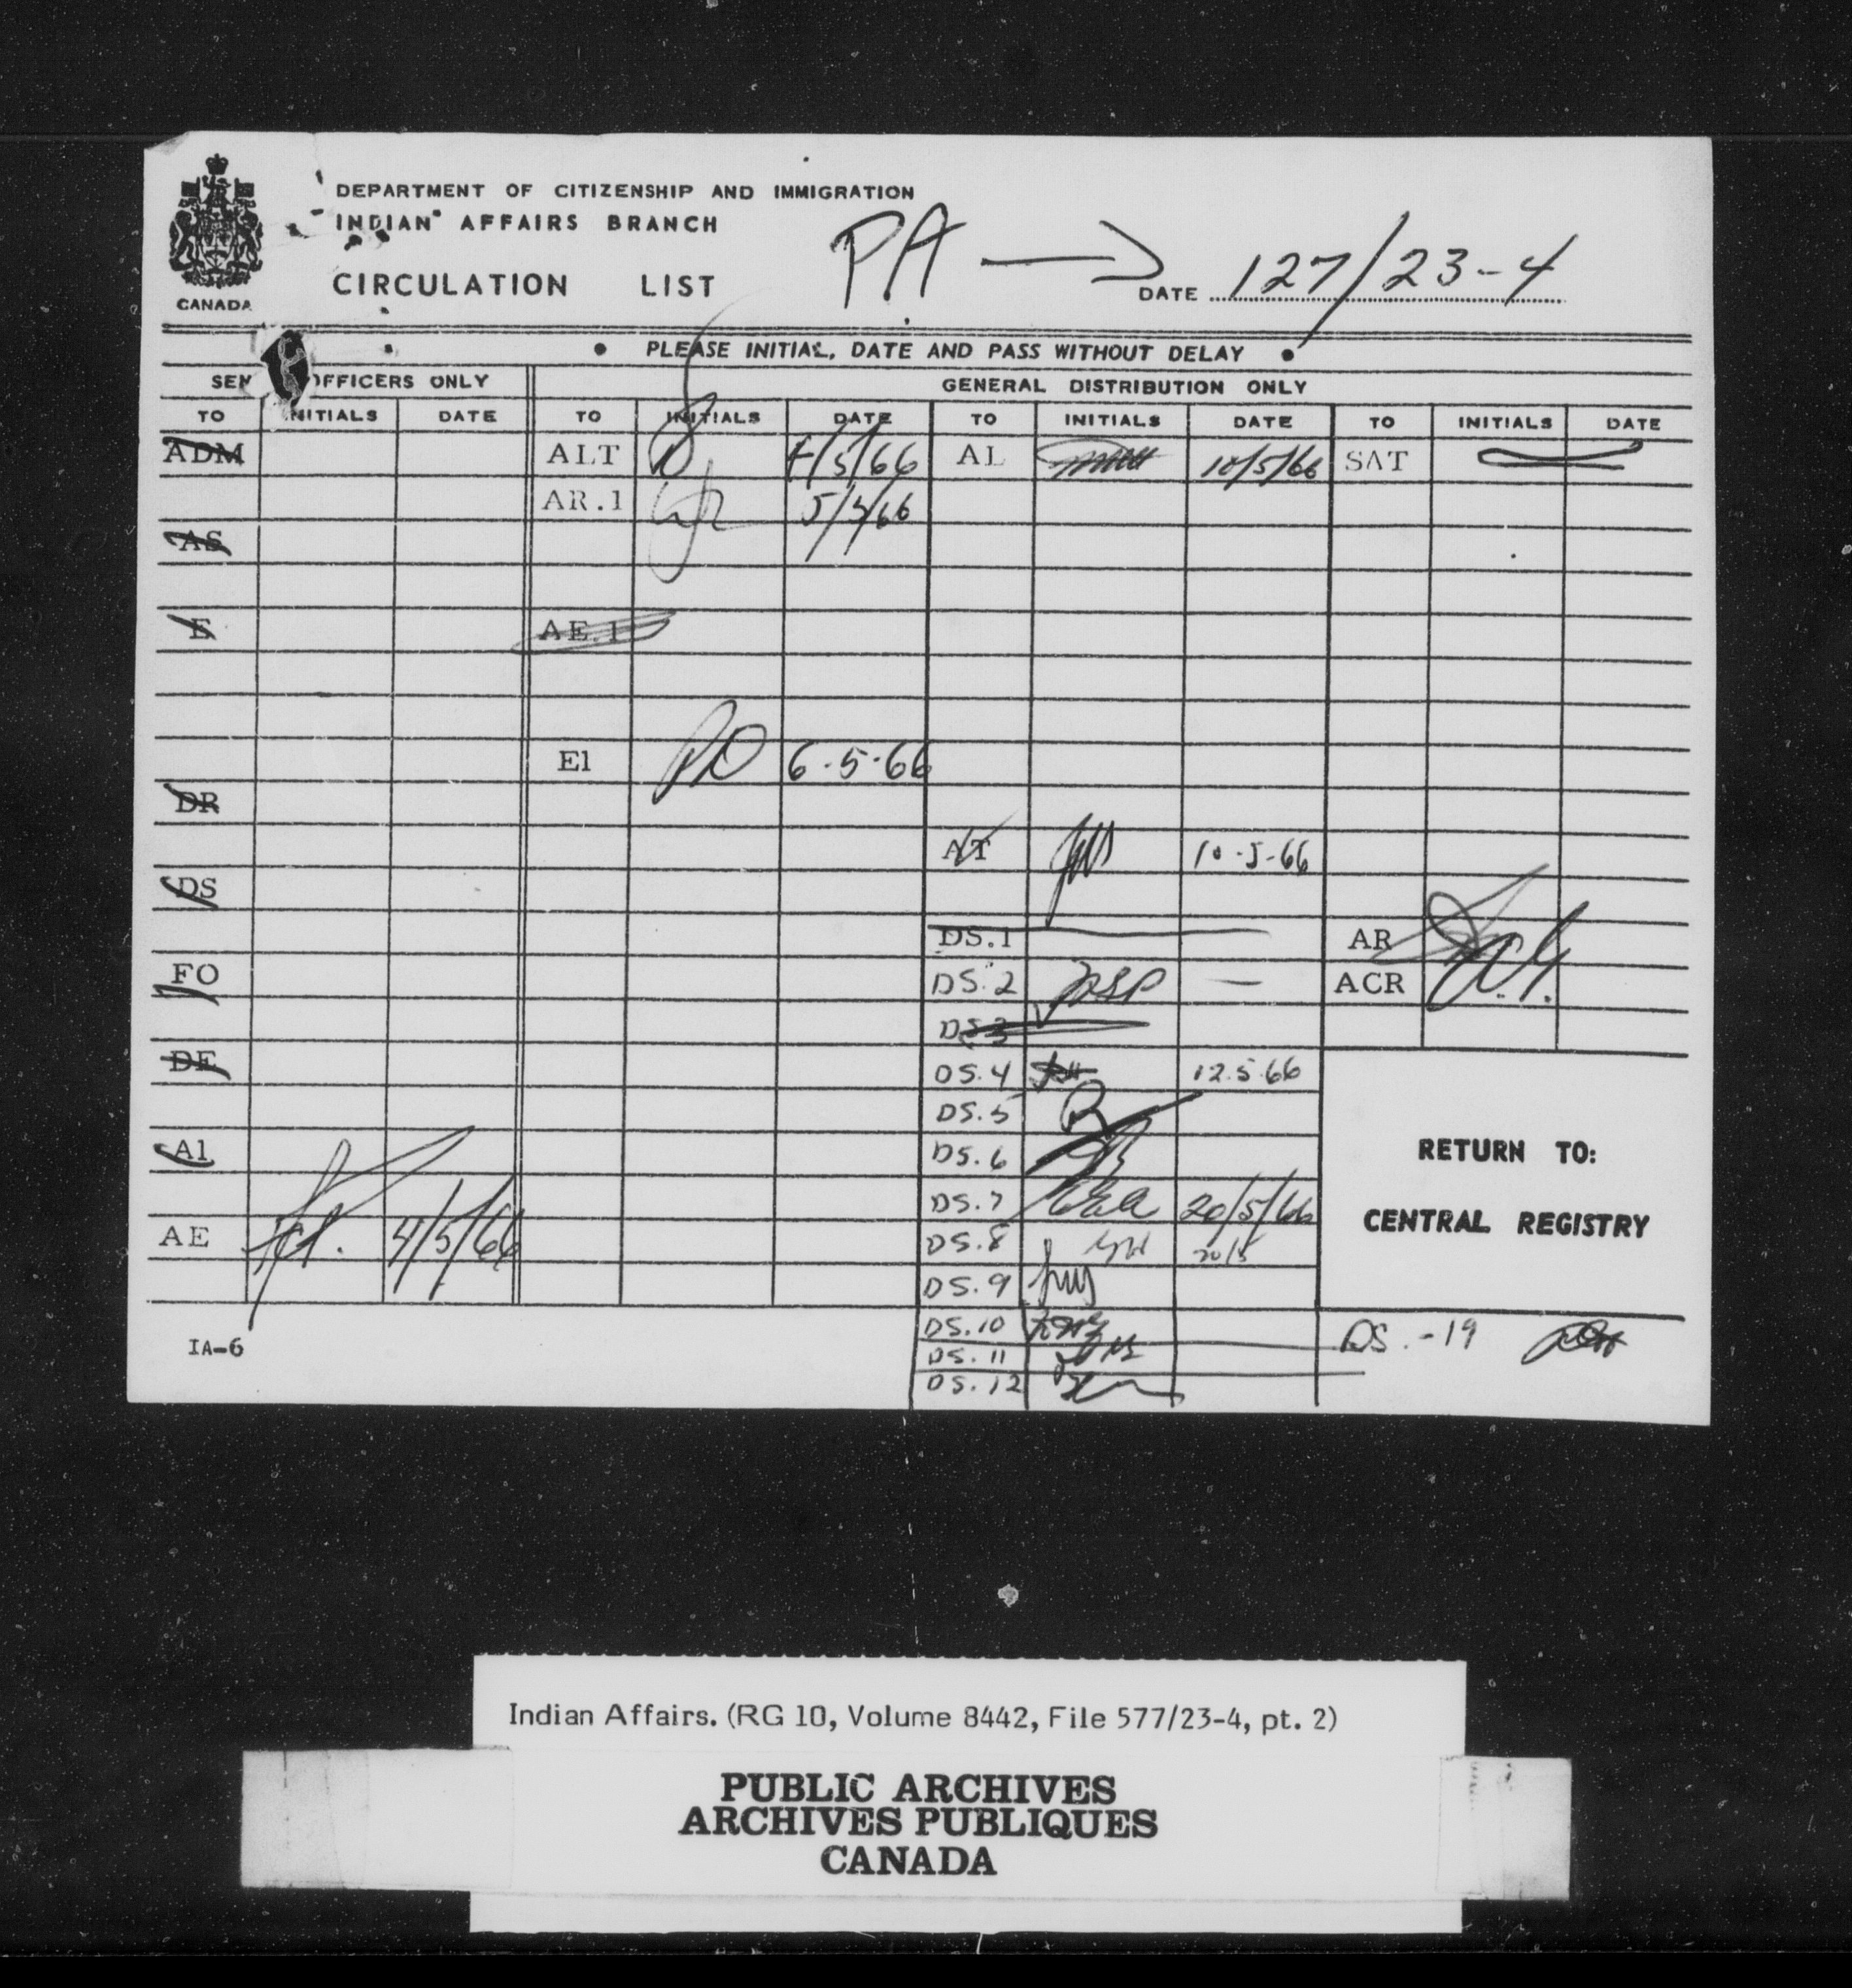 DEPARTMENT OF CITIZENSHIP AND IMMIGRATION
INDIAN AFFAIRS BRANCH
CIRCULATION LIST
CANADA
PA
DATE 127/23-4
PLEASE INITIAL, DATE AND PASS WITHOUT DELAY
OFFICERS ONLY
GENERAL DISTRIBUTION ONLY
TO INITIALS DATE TO INITIALS DATE TO INITIALS DATE TO INITIALS DATE
ADM ALT /5/66 AL 10/5/66 SAT
AR.1 5/5/66
AS
E AE.1
E1 6-5-66
DR
AT 10-5-66
DS
DS.1 AR
FO DS.2 ACR
DS.3
DE DS.4 12.5.66
DS.5
A1 DS.6
RETURN TO:
DS.7 20/5/66
CENTRAL REGISTRY
AE 4/5/66 DS.8 20/5
DS.9
DS.10 DS.-19
IA-6
DS.11
DS.12
Indian Affairs. (RG 10, Volume 8442, File 577/23-4, pt. 2)
PUBLIC ARCHIVES
ARCHIVES PUBLIQUES
CANADA